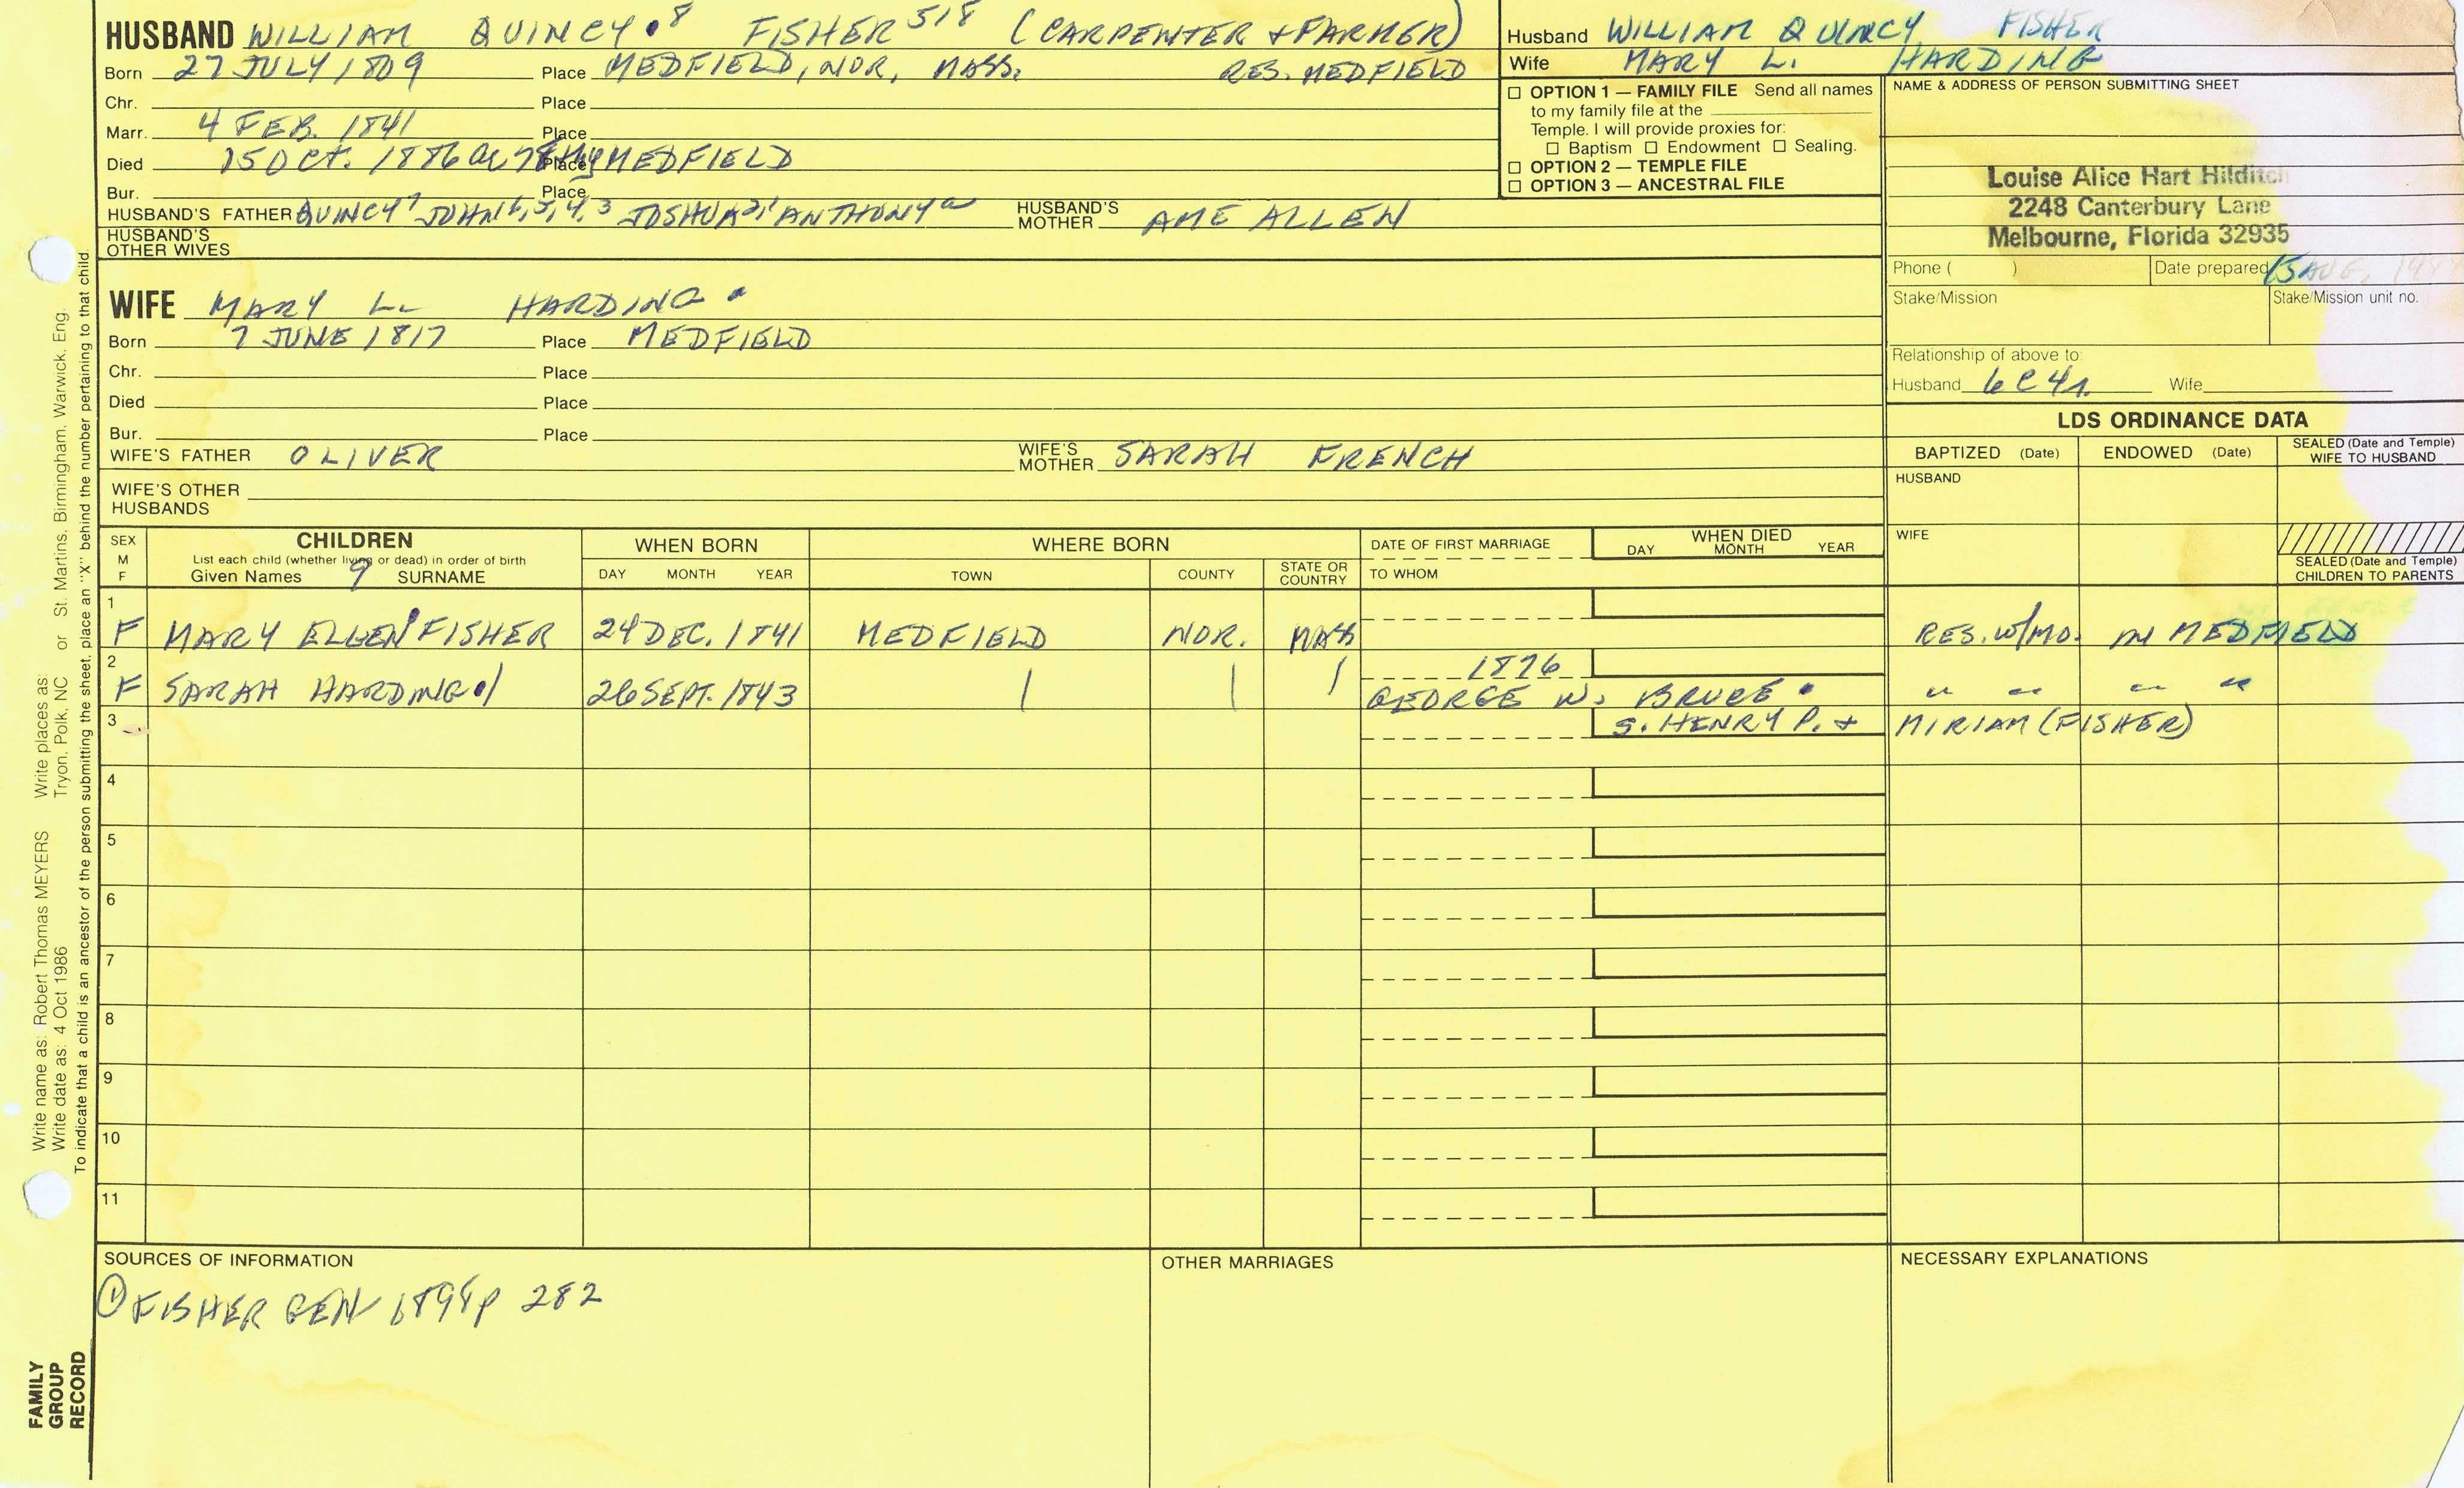 HUSBAND WILLIAM QUINCY 8 FISHER 518 (CARPENTER & FARMER)
Born 27 JULY 1809 Place MEDFIELD, NOR, MASS. RES. MEDFIELD
Chr. Place
Marr. 4 FEB. 1841 Place
Died 15 OCT. 1886 Place MEDFIELD
Bur. Place
HUSBAND'S FATHER QUINCY 7 JOHN 6,5,4,3 JOSHUA 2,1 ANTHONY a HUSBAND'S MOTHER AME ALLEN
HUSBAND'S OTHER WIVES
Husband WILLIAM QUINCY FISHER
Wife MARY L. HARDING
☐ OPTION 1 — FAMILY FILE Send all names
to my family file at the
Temple. I will provide proxies for:
☐ Baptism ☐ Endowment ☐ Sealing.
☐ OPTION 2 — TEMPLE FILE
☐ OPTION 3 — ANCESTRAL FILE
NAME & ADDRESS OF PERSON SUBMITTING SHEET
Louise Alice Hart Hilditch
2248 Canterbury Lane
Melbourne, Florida 32935
Phone ( ) Date prepared 15 AUG,
Stake/Mission Stake/Mission unit no.
Relationship of above to:
Husband 6C4r. Wife
WIFE MARY L. HARDING
Born 7 JUNE 1817 Place MEDFIELD
Chr. Place
Died Place
Bur. Place
WIFE'S FATHER OLIVER WIFE'S MOTHER SARAH FRENCH
WIFE'S OTHER HUSBANDS
LDS ORDINANCE DATA
BAPTIZED (Date) ENDOWED (Date) SEALED (Date and Temple) WIFE TO HUSBAND
HUSBAND
WIFE
SEALED (Date and Temple) CHILDREN TO PARENTS
SEX M F CHILDREN WHEN BORN WHERE BORN DATE OF FIRST MARRIAGE WHEN DIED
List each child (whether living or dead) in order of birth
Given Names 9 SURNAME DAY MONTH YEAR TOWN COUNTY STATE OR COUNTRY TO WHOM DAY MONTH YEAR
1
F MARY ELLEN FISHER 24 DEC. 1841 MEDFIELD NOR. MASS RES. W/MO. IN MEDFIELD
2 1876
F SARAH HARDING 26 SEPT. 1843 GEORGE W. BRUCE " " " "
3 S. HENRY P. & MIRIAM (FISHER)
4
5
6
7
8
9
10
11
SOURCES OF INFORMATION OTHER MARRIAGES NECESSARY EXPLANATIONS
① FISHER GEN 1898 p 282
Write name as: Robert Thomas MEYERS Write places as: Tryon, Polk, NC or St. Martins, Birmingham, Warwick, Eng.
Write date as: 4 Oct 1986
To indicate that a child is an ancestor of the person submitting the sheet, place an "X" behind the number pertaining to that child.
FAMILY
GROUP
RECORD